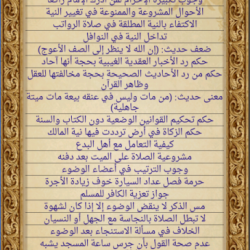 وجوب تكبيرة الإحرام لمن أدرك الإمام راكعا
الأحوال المشروعة والممنوعة في تغيير النية
الاكتفاء بالنية المطلقة في صلاة الرواتب
تداخل النية في النوافل
ضعف حديث: (إن الله لا ينظر إلى الصف الأعوج)
حكم رد الأخبار العقدية الغيبية بحجة أنها آحاد
حكم من رد الأحاديث الصحيحة بحجة مخالفتها للعقل
وظاهر القرآن
معنى حديث: (من مات وليس في عنقه بيعة مات ميتة
جاهلية)
حكم تحكيم القوانين الوضعية دون الكتاب والسنة
حكم الزكاة في أرض ترددت فيها نية المالك
كيفية التعامل مع أهل البدع
مشروعية الصلاة على الميت بعد دفنه
وجوب الترتيب في أعضاء الوضوء
حرمة فصل عداد السيارة خوف زيادة الأجرة
جواز تعزية الكافر للمسلم
مس الذكر لا ينقض الوضوء إلا إذا كان لشهوة
لا تبطل الصلاة بالنجاسة مع الجهل أو النسيان
الخلاف في مسألة الاستنجاء بعد الوضوء
عدم صحة القول بأن جرس ساعة المسجد يشبه